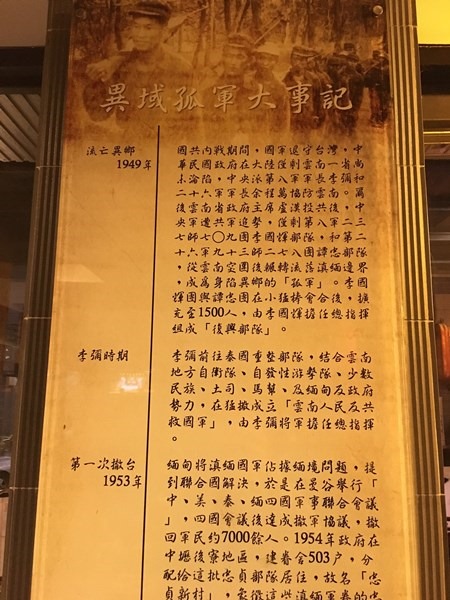 異域孤軍大事記
流亡異鄉
1949年
國共內戰期間，國軍退守台灣，中
華民國政府在大陸僅剩雲南一省尚
未淪陷，中央派第八軍軍長李彌和
二十六軍軍長余程萬協防雲南。爾
後雲南省政府主席盧漢投共後，中
央軍遭共軍追勦，僅剩第八軍二三
七師七〇九團李國煇部隊，和第二
十六軍九十三師二七八團譚忠部隊
，從雲南突圍後輾轉流落滇緬邊界
，成為身陷異鄉的「孤軍」。李國
煇團與譚忠團在小猛捧會合後，擴
充至1500人，由李國煇擔任總指揮
組成「復興部隊」。
李彌時期
李彌前往泰國重整部隊，結合雲南
地方自衛隊、自發性游勢隊、少數
民族、土司、馬幫、及緬甸反政府
勢力，在猛撒成立「雲南人民反共
救國軍」，由李彌將軍擔任總指揮
。
第一次撤台
1953年
緬甸將滇緬國軍佔據緬境問題，提
到聯合國解決，於是在曼谷舉行「
中、美、泰、緬四國軍事聯合會議
」，四國會議後達成撤軍協議，撤
回軍民約7000餘人。1954年政府在
中壢後寮地區，建眷舍503戶，分
配給這批忠貞部隊居住，故名「忠
貞新村」，象徵這些滇緬軍眷的忠